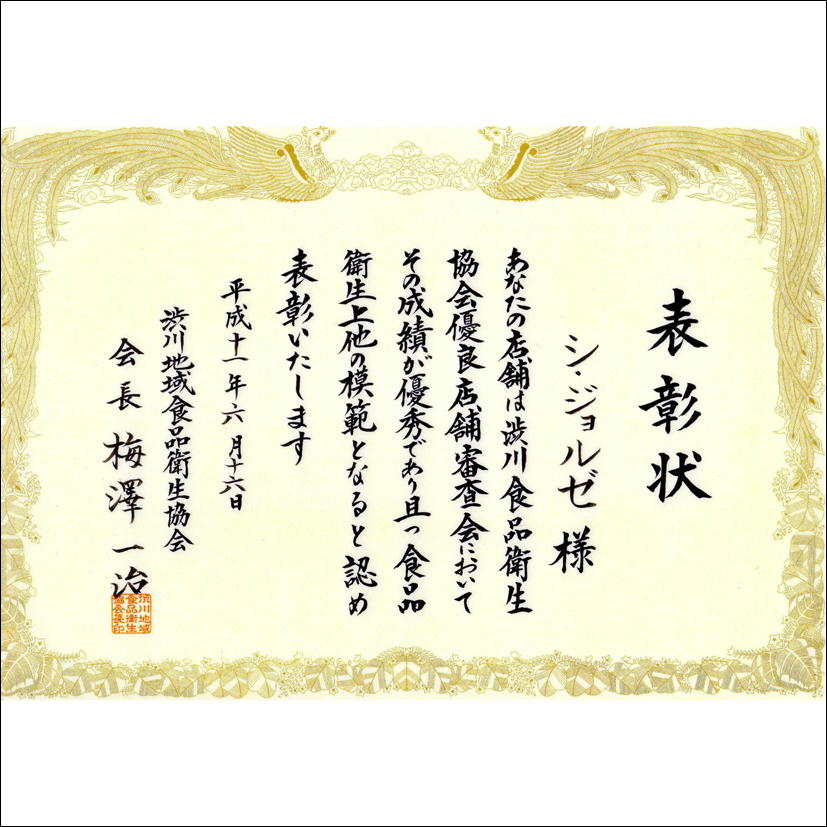 表彰状
シ・ジョルゼ 様
あなたの店舗は渋川食品衛生
協会優良店舗審査会において
その成績が優秀であり且つ食品
衛生上他の模範となると認め
表彰いたします
平成十一年六月十六日
渋川地域食品衛生協会
会長 梅澤一治
渋川地域
食品衛生
協会長印